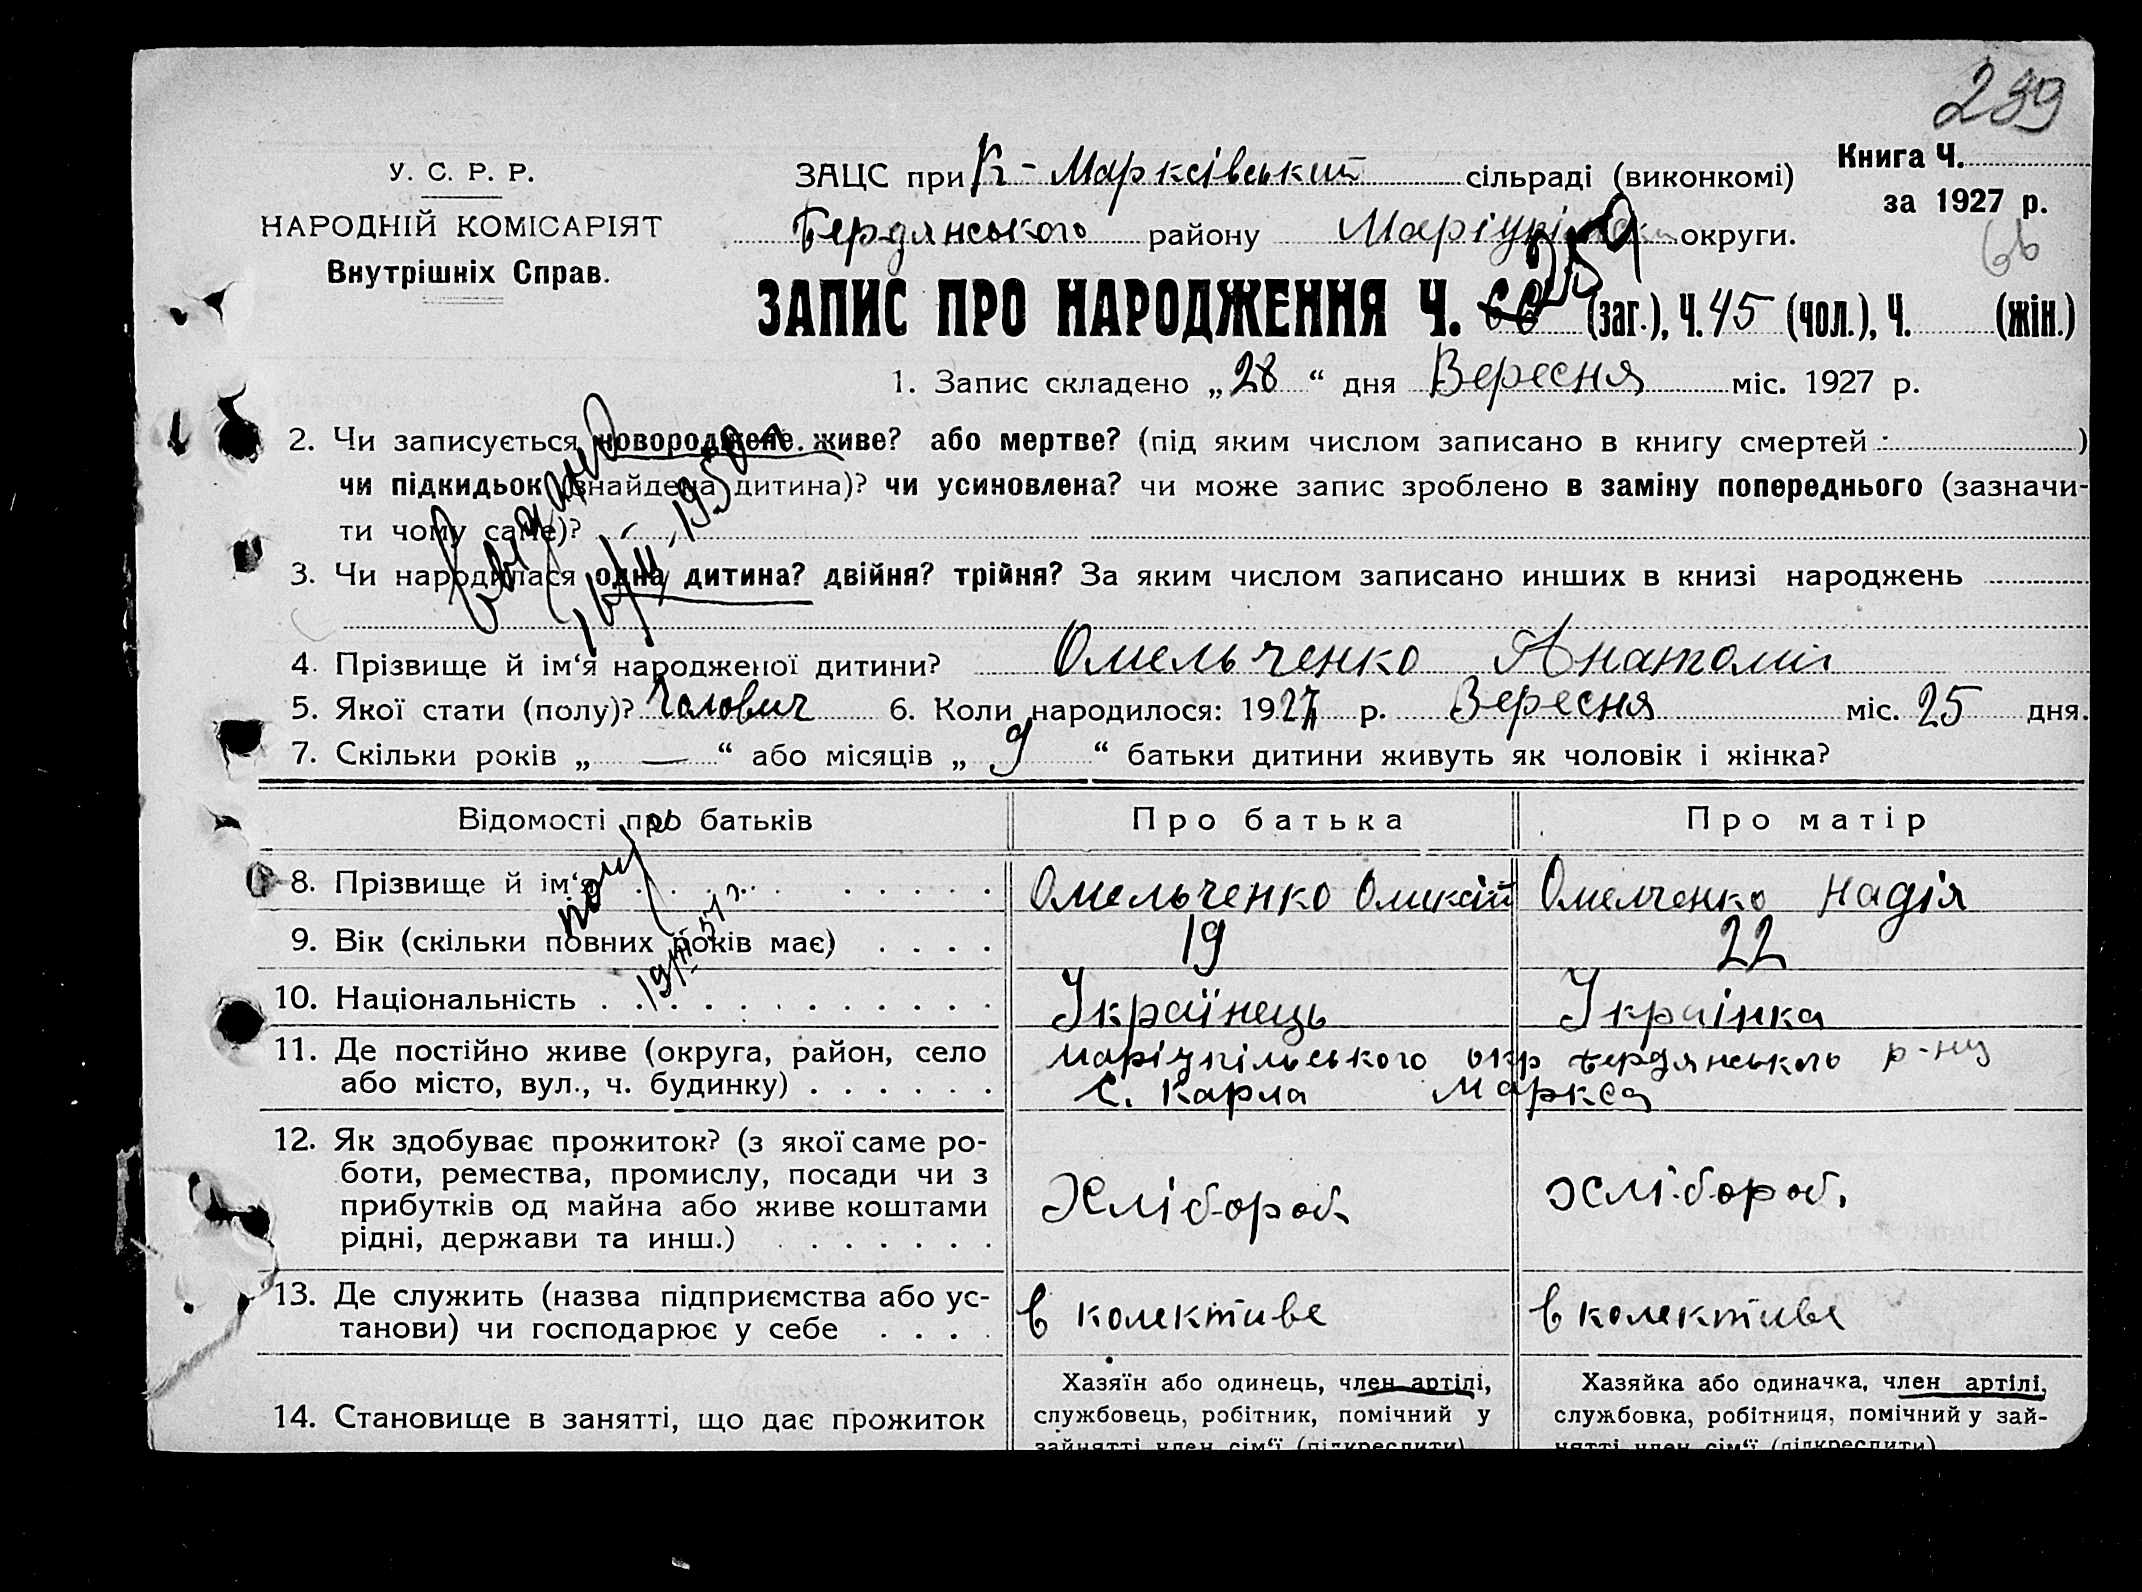 239
У. С. Р. Р.
НАРОДНІЙ КОМІСАРІЯТ
Внутрішніх Справ.
ЗАЦС при К-Марксівський сільраді (виконкомі)
Книга Ч.
за 1927 р.
Бердянського району Маріупільськ округи.
66
ЗАПИС ПРО НАРОДЖЕННЯ Ч. 66 259 (заг.), Ч. 45 (чол.), Ч. (жін.)
1. Запис складено „28“ дня Вересня міс. 1927 р.
2. Чи записується новороджене живе? або мертве? (під яким числом записано в книгу смертей : )
чи підкидьок (знайдена дитина)? чи усиновлена? чи може запис зроблено в заміну попереднього (зазначи-
ти чому саме)?
3. Чи народилася одна дитина? двійня? трійня? За яким числом записано инших в книзі народжень
4. Прізвище й ім‘я народженої дитини? Омельченко Анатолій
5. Якої стати (полу)? Чолович 6. Коли народилося: 1927 р. Вересня міс. 25 дня.
7. Скільки років „ — “ або місяців „ 9 “ батьки дитини живуть як чоловік і жінка?
Відомості про батьків Про батька Про матір
8. Прізвище й ім‘я . . . . . . . . . Омельченко Оликсій Омелченко Надія
9. Вік (скільки повних років має) . . . . 19 22
10. Національність . . . . . . . . . . . . Українець Українка
11. Де постійно живе (округа, район, село маріупільського окр бердянського р-ну
або місто, вул., ч. будинку) . . . . . . с. Карла Маркса
12. Як здобуває прожиток? (з якої саме ро-
боти, ремества, промислу, посади чи з
прибутків од майна або живе коштами Хлібороб Хлібороб.
рідні, держави та инш.) . . . . . . .
13. Де служить (назва підприємства або ус-
танови) чи господарює у себе . . . . в колективе в колективе
Хазяїн або одинець, член артілі, Хазяйка або одиначка, член артілі,
14. Становище в занятті, що дає прожиток службовець, робітник, помічний у службовка, робітниця, помічний у зай-
зайнятті член сім‘ї (підкреслити) нятті член сім‘ї (підкреслити)